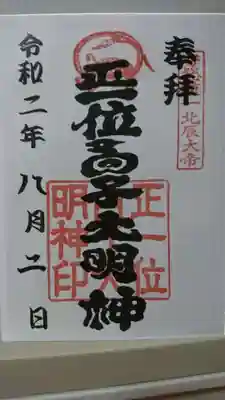 奉拝
北辰大帝
正一位高子大明神
正一位
明神印
令和二年八月二日